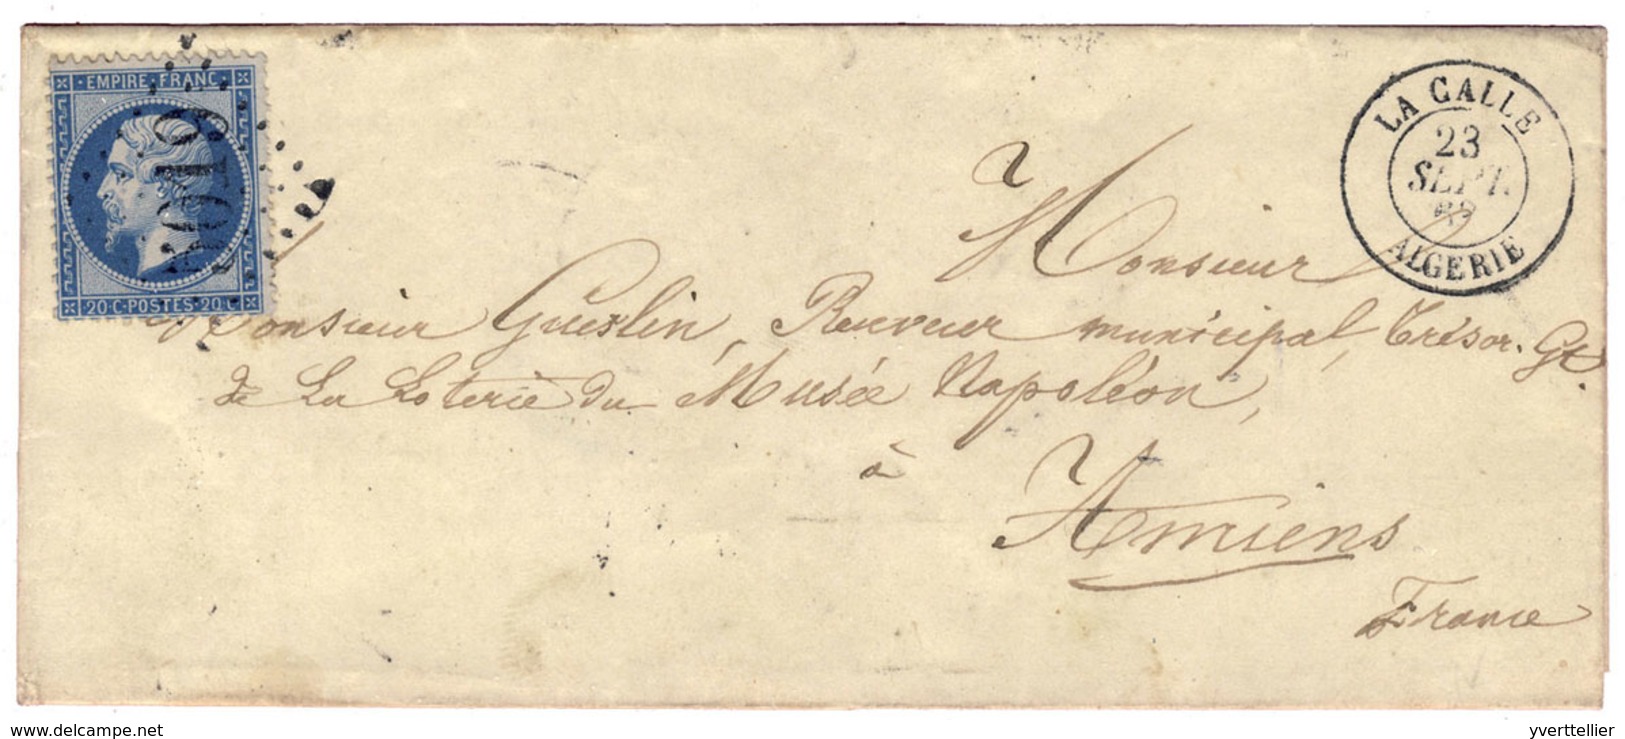 EMPIRE FRANC
20 C · POSTES · 20 C
LA CALLE
23
SEPT.
ALGERIE
Monsieur
Monsieur Gueslin, Receveur municipal, Trésor. Gl.
de La Loterie du Musée Napoléon,
à
Amiens
France
www.delcampe.net
yverttellier